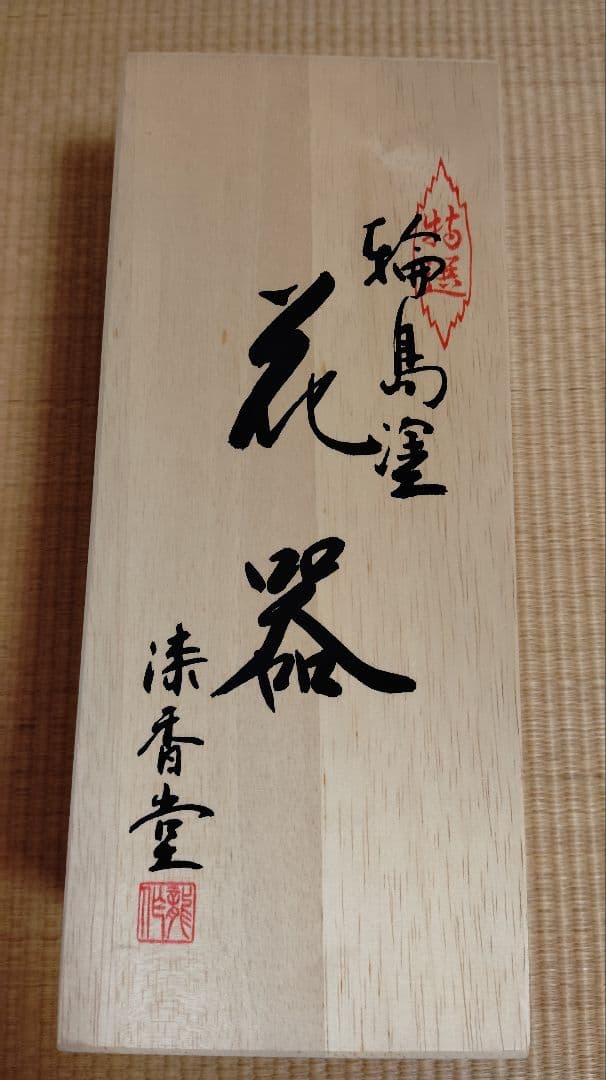 特選
輪島塗
花器
漆香堂
龍作